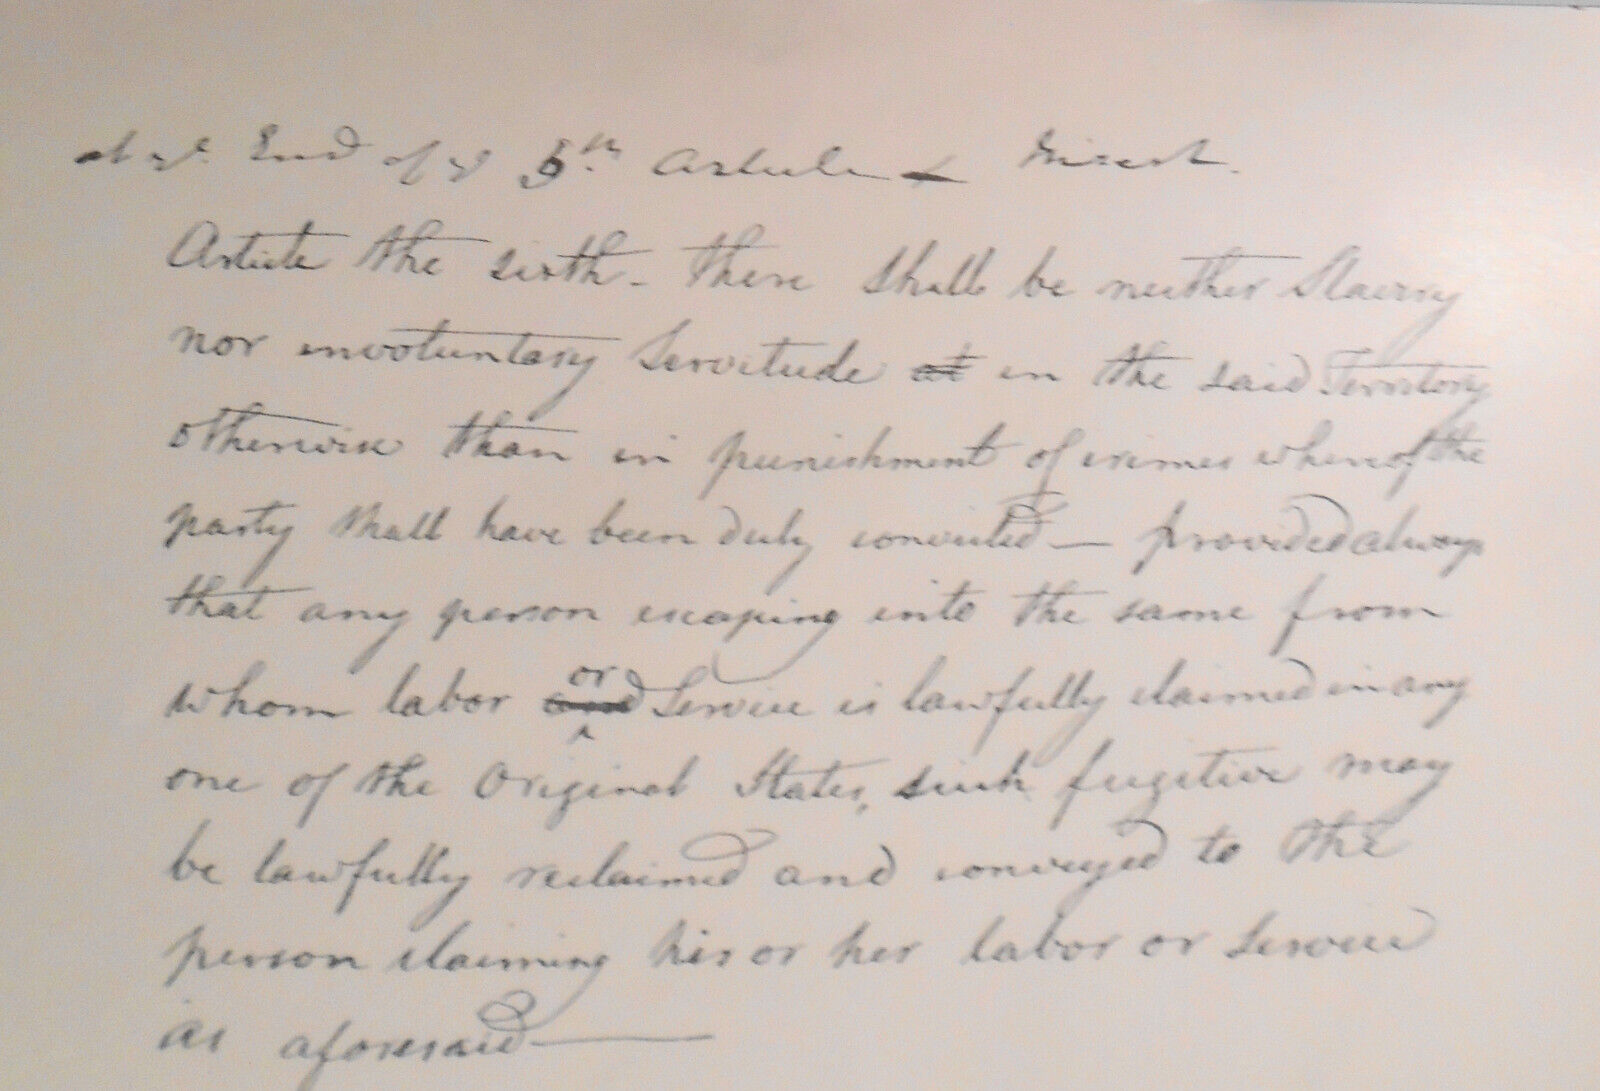 at ye End of ye 5th Article Insert.
Article the sixth - There shall be neither Slavery
nor involuntary Servitude at in the said Territory
otherwise than in punishment of crimes whereof the
party shall have been duly convicted — provided always
that any person escaping into the same from
whom labor and or Service is lawfully claimed in any
one of the Original States, such fugitive may
be lawfully reclaimed and conveyed to the
person claiming his or her labor or Service
as aforesaid —